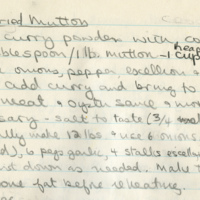 ried Mutton
Curry powder with co
blespoon/1 lb. mutton - 1 heap cup
onions, pepper, escellion &
add curry and bring to
meat & oyster sauce & mo
sary - salt to taste (3/4
lly make 12 lbs & use 6 onions
d), 6 pegs garlic, 4 stalks escellion
t down as needed. Make t
ove fat before reheating.